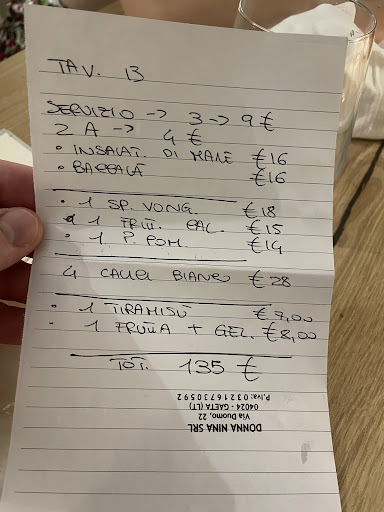 TAV. 13
SERVIZIO -> 3 -> 9 €
2 A -> 4 €
• INSALAT. DI MARE €16
• BACCALÀ €16
• 1 SP. VONG. €18
1 FRITT. CAL. €15
• 1 P. POM. €14
4 CALICI BIANCO €28
• 1 TIRAMISÙ €7,00
• 1 FRUTTA + GEL. €8,00
TOT. 135 €
DONNA NINA SRL
Via Duomo, 22
04024 - GAETA (LT)
P.Iva: 03216730592